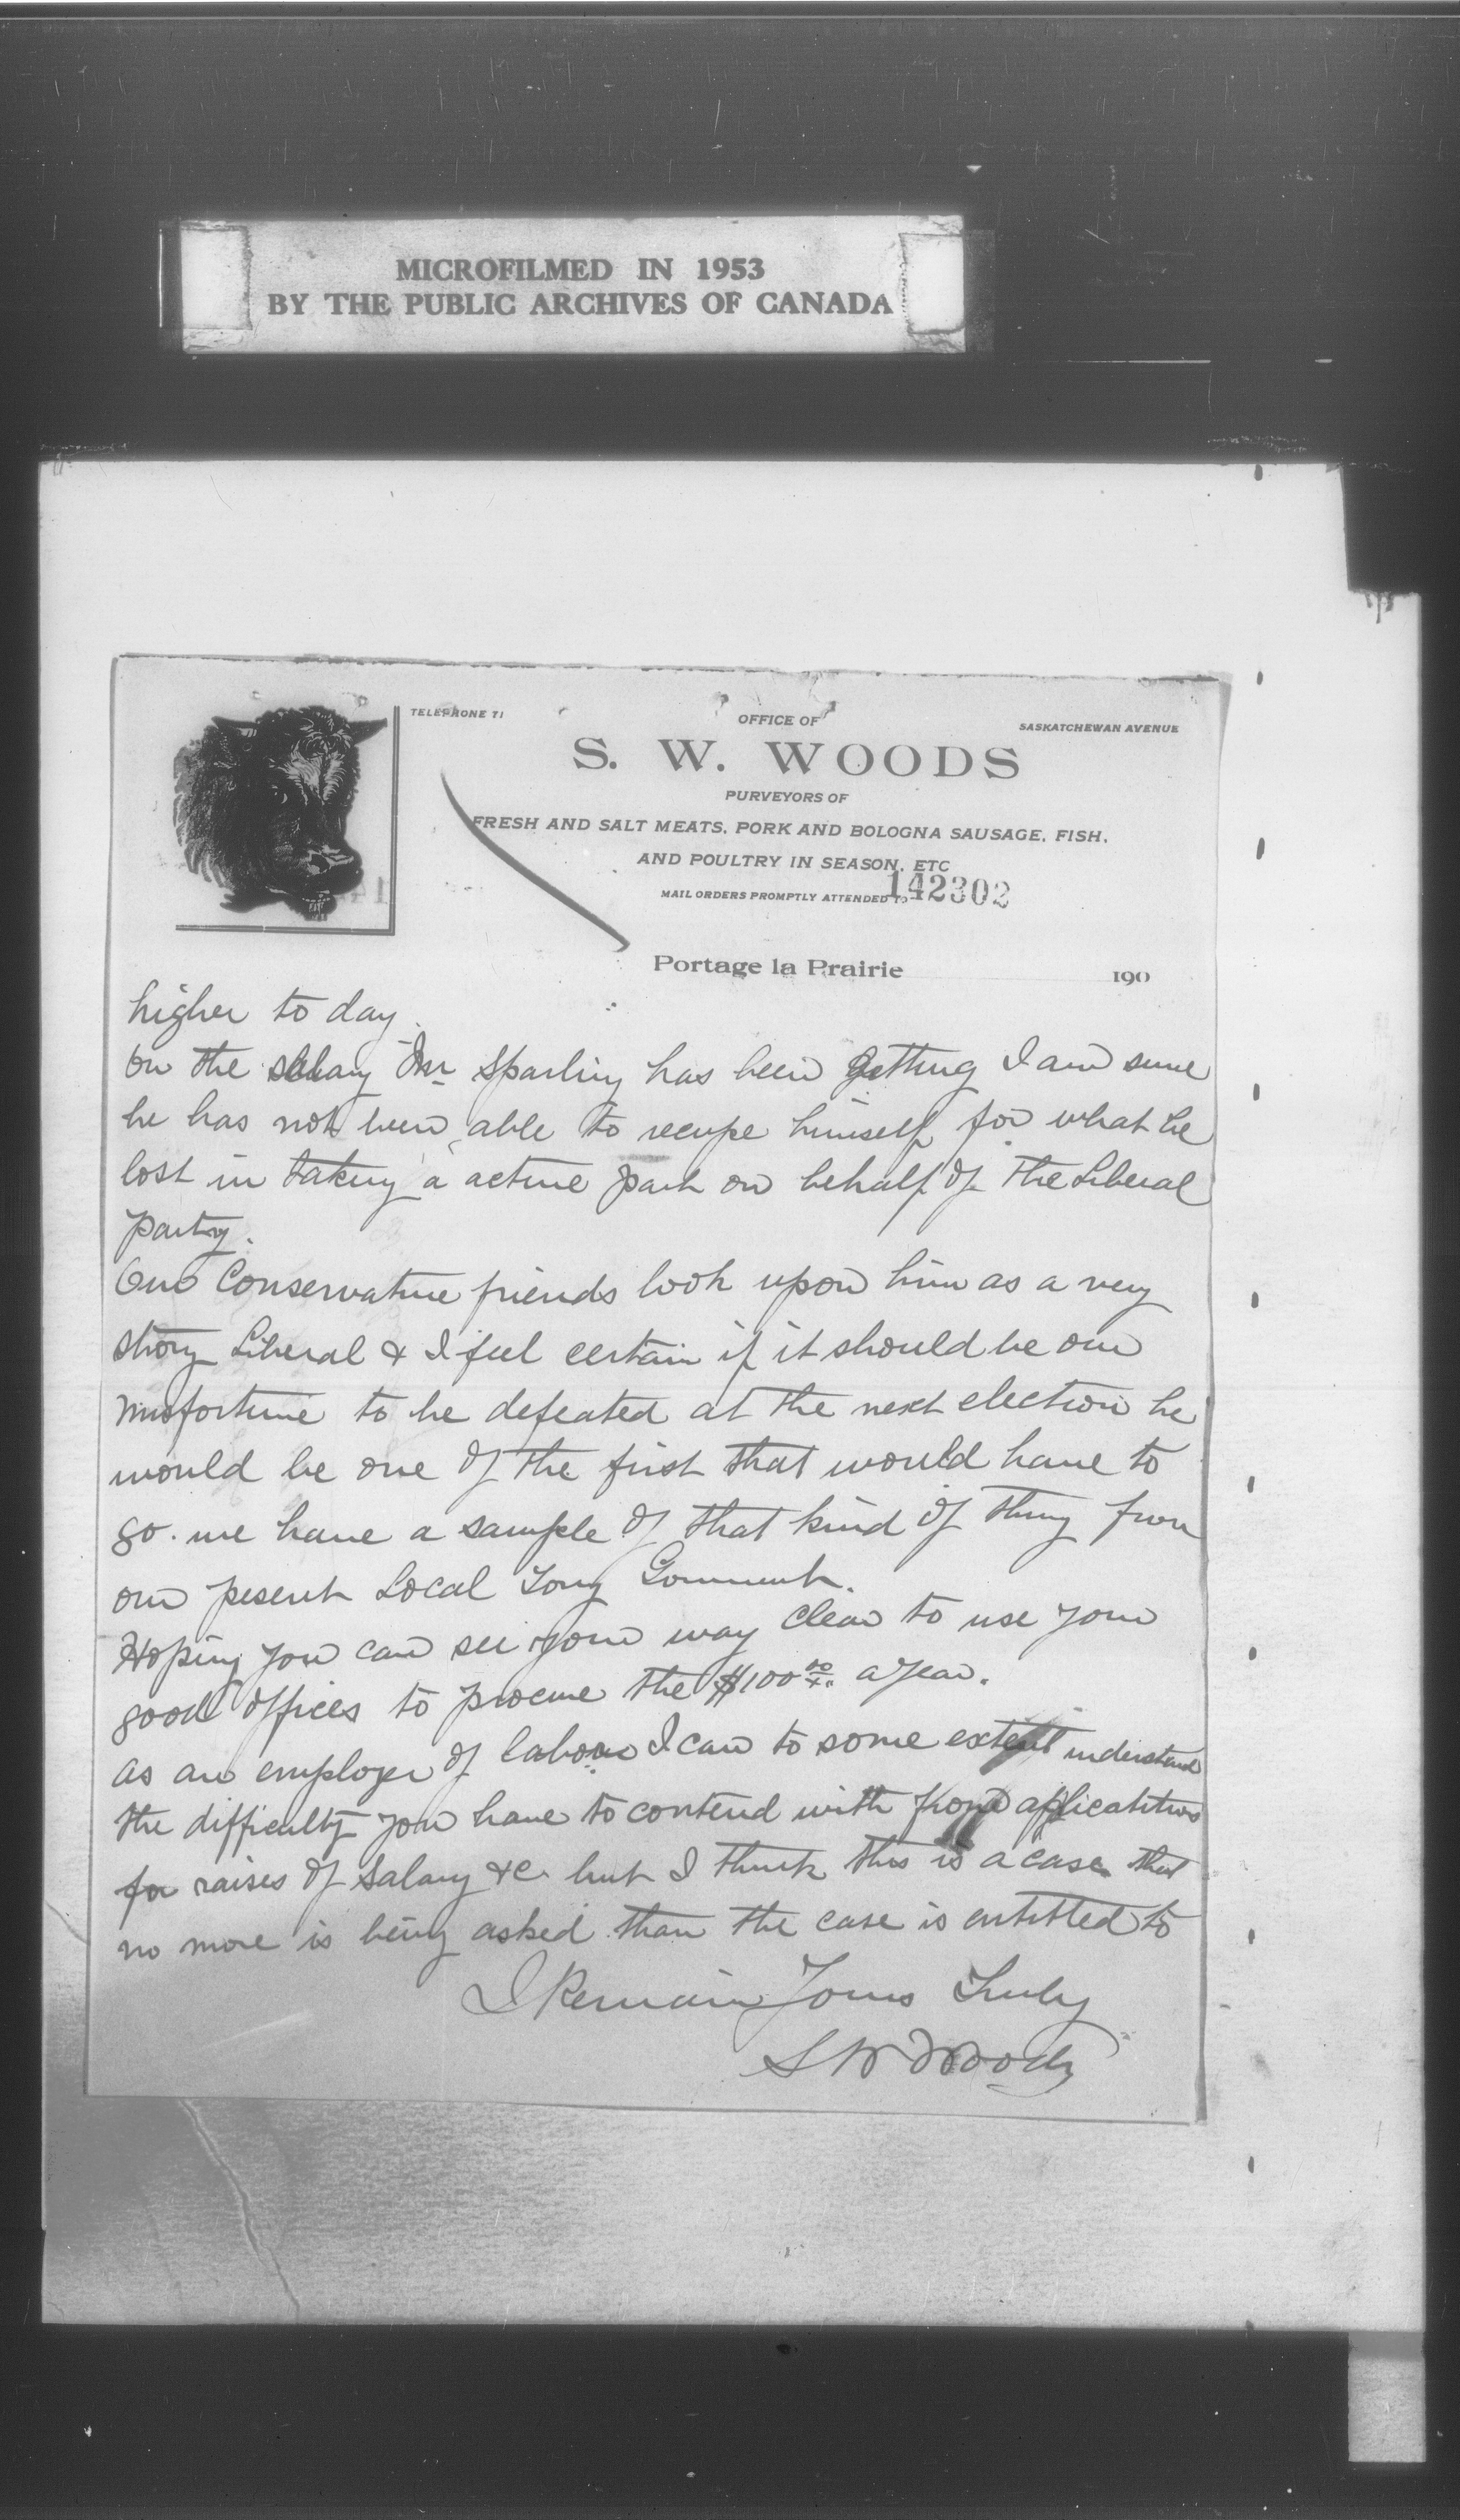 MICROFILMED IN 1953
BY THE PUBLIC ARCHIVES OF CANADA
TELEPHONE 71
OFFICE OF
SASKATCHEWAN AVENUE
S. W. WOODS
PURVEYORS OF
FRESH AND SALT MEATS, PORK AND BOLOGNA SAUSAGE, FISH,
AND POULTRY IN SEASON, ETC
MAIL ORDERS PROMPTLY ATTENDED TO
142302
Portage la Prairie 190
higher to day.
On the salary Mr Sparling has been getting I am sure
he has not been able to recupe himself for what he
lost in taking a active part on behalf of the Liberal
party.
Our Conservative friends look upon him as a very
strong Liberal & I feel certain if it should be our
misfortune to be defeated at the next election he
would be one of the first that would have to
go. we have a sample of that kind of thing from
our pesent Local Tory Government.
Hoping you can see your way clear to use your
good offices to procure the $100 00/xx a year.
as an employer of labour I can to some extent understand
the difficulty you have to contend with from applications
for raises of salary &c but I think this is a case that
no more is being asked than the case is entitled to
I Remain Yours Truly
S W Woods